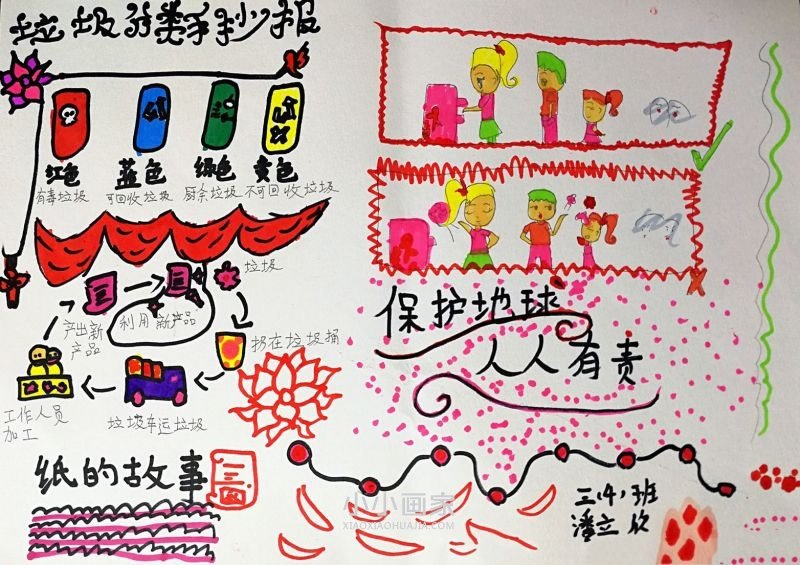 垃圾分类手抄报
红色 蓝色 绿色 黄色
有毒垃圾 可回收垃圾 厨余垃圾 不可回收垃圾
垃圾
产出新产品
利用 新产品
扔在垃圾桶
工作人员加工
垃圾车运垃圾
纸的故事
保护地球
人人有责
三(4)班
潘立欣
小小画家
XIAOXIAOHUAJIA.COM